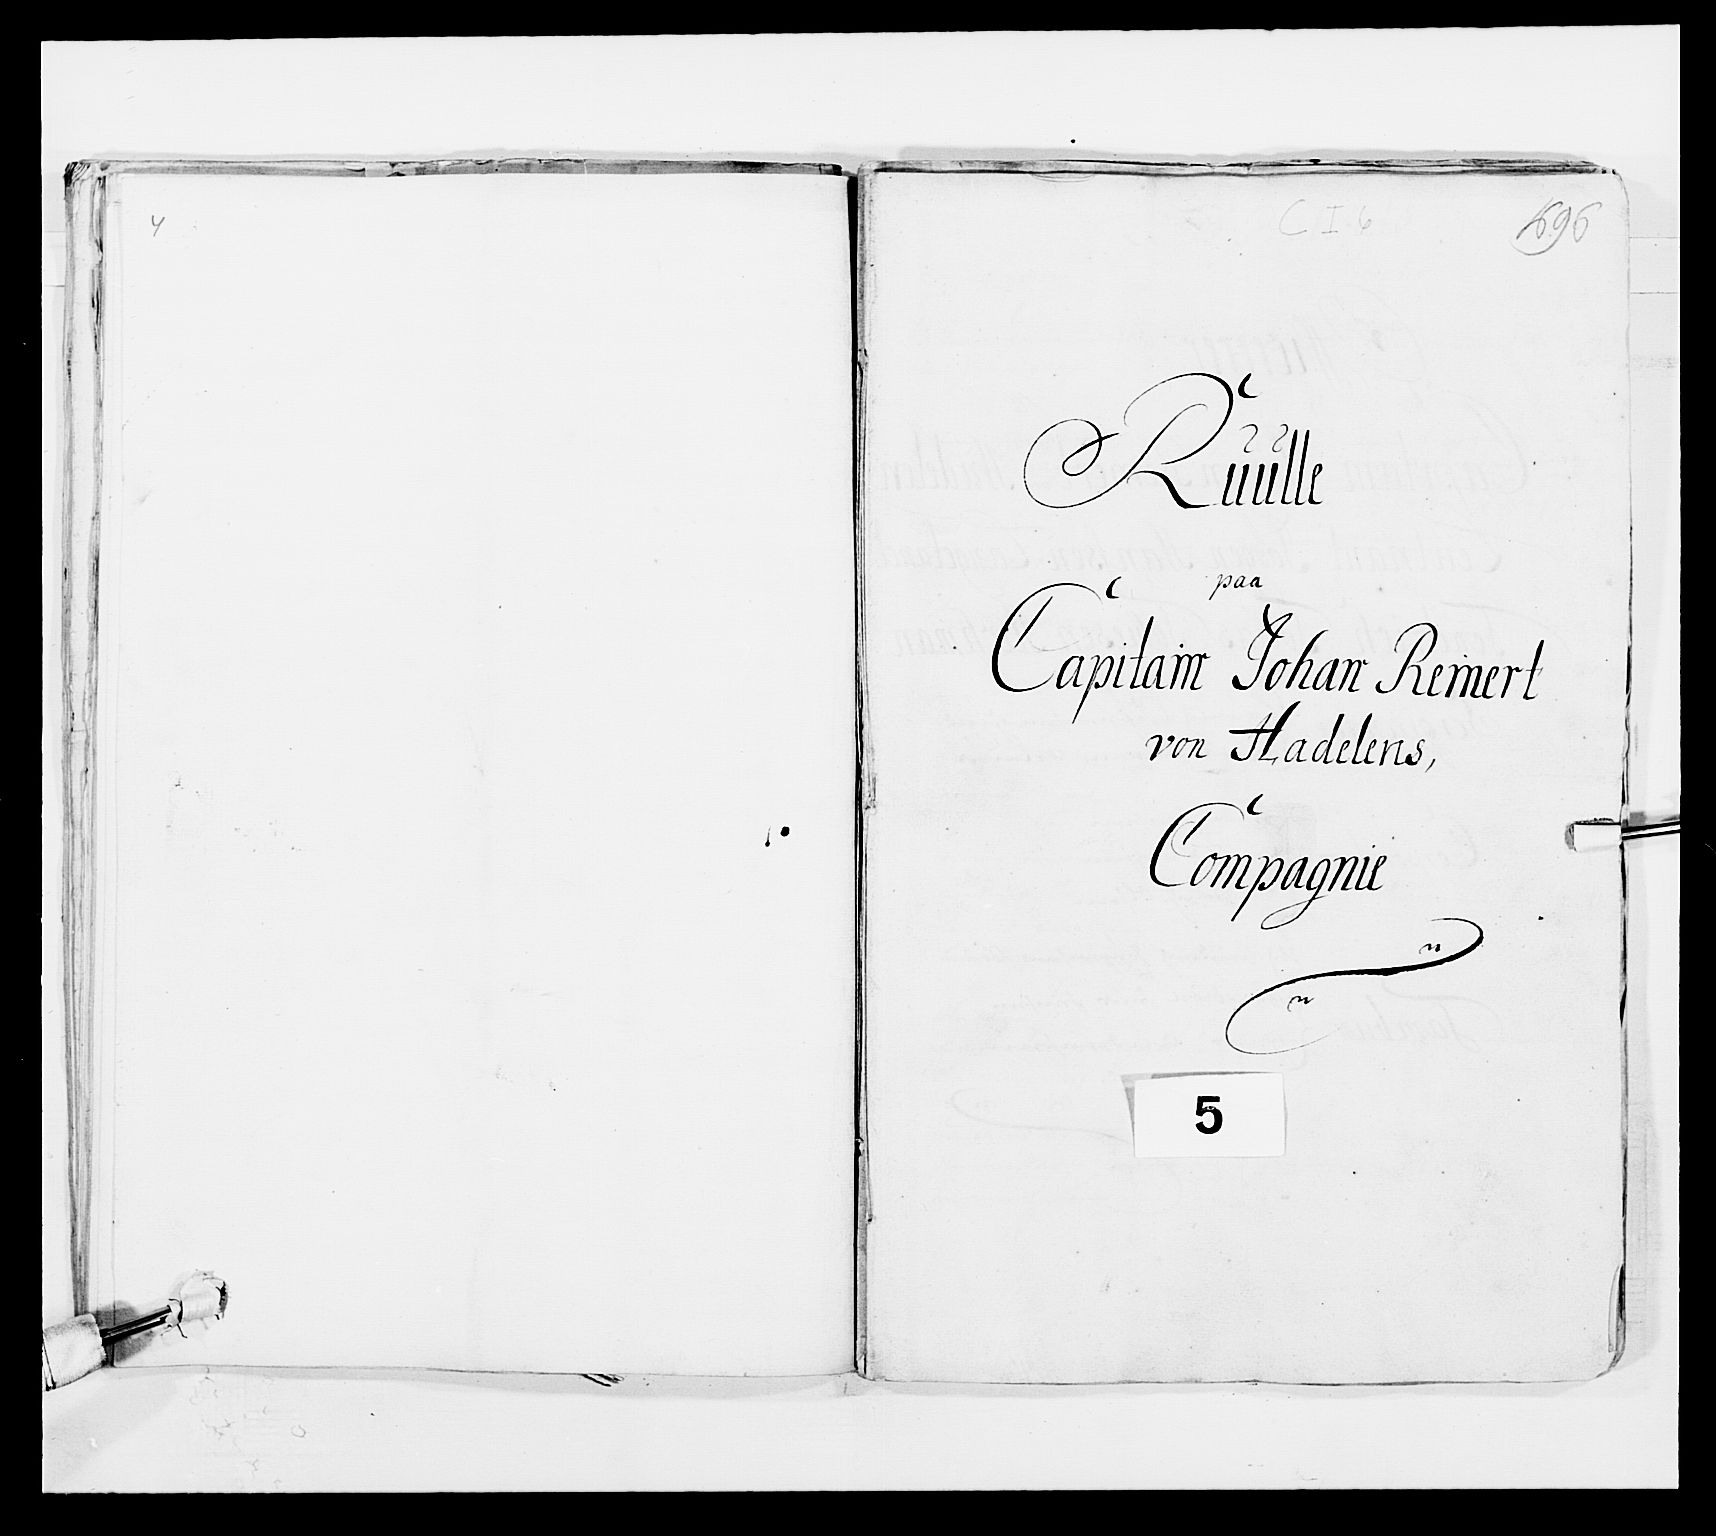 4
C I 6
1696
Rŭŭlle
paa
Capitain Johan Reinert
von Hadelens,
Compagnie
5